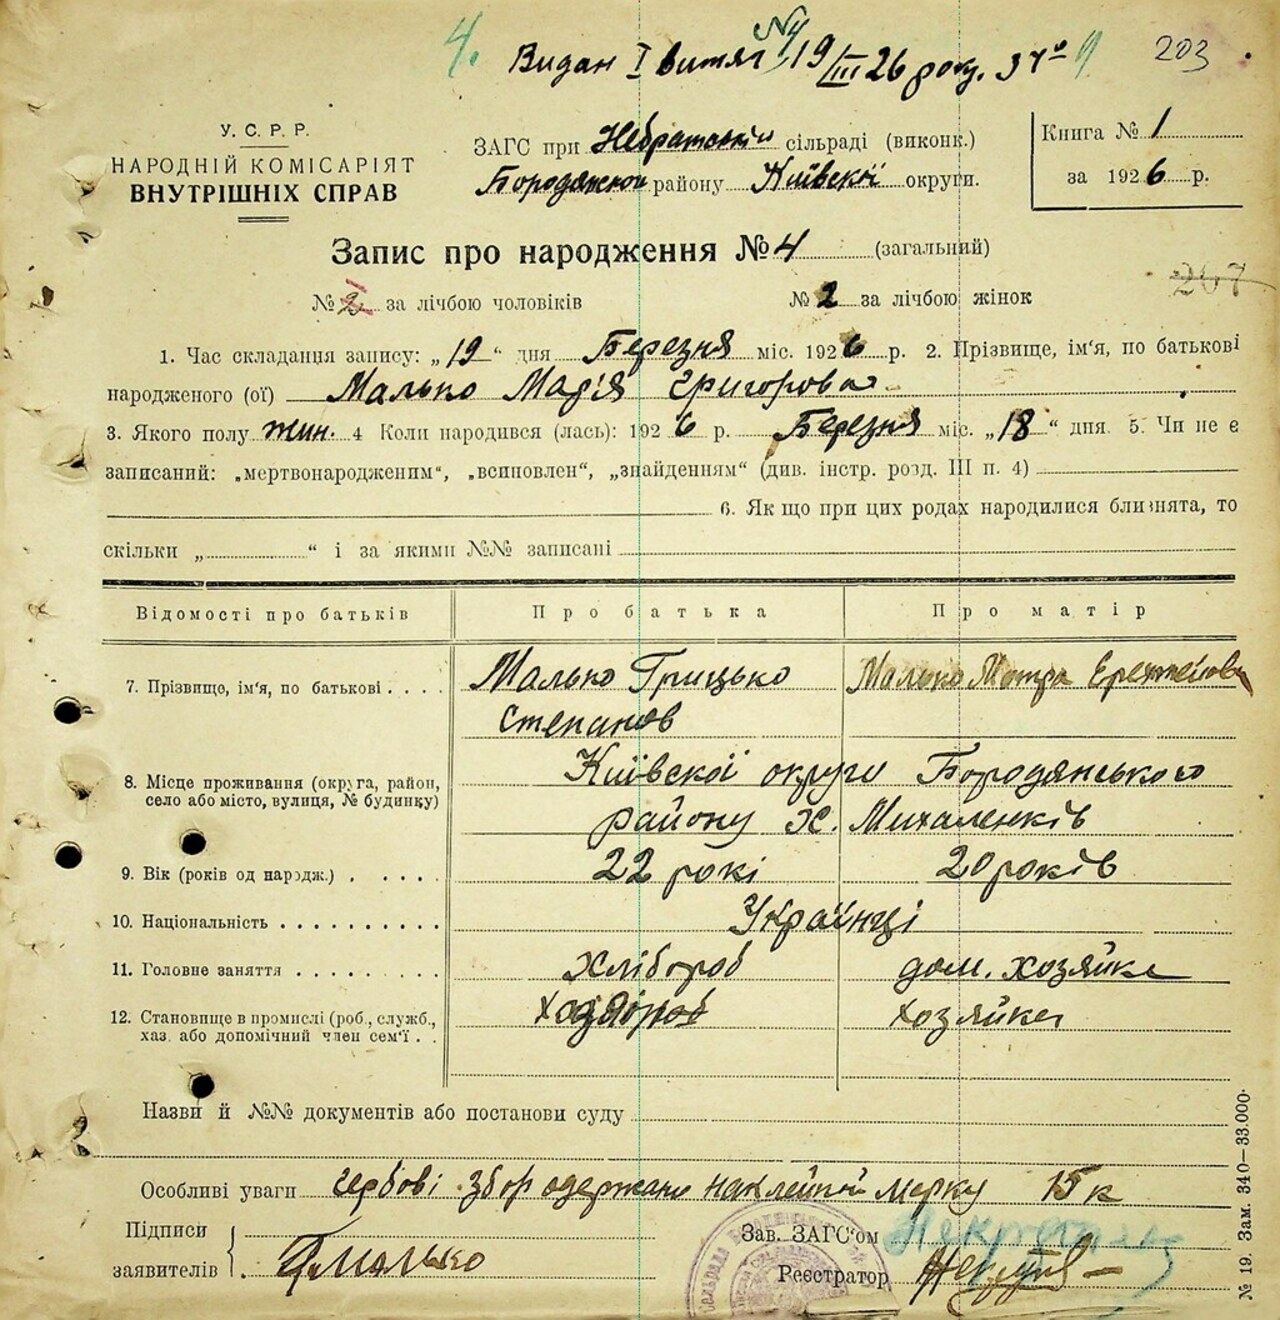 4. Видан I витяг №4 19/III 26 року. 203
У. С. Р. Р.
НАРОДНІЙ КОМІСАРІЯТ
ВНУТРІШНІХ СПРАВ
ЗАГС при Небратській сільраді (виконк.)
Бородянськ району Київскої округи.
Книга № 1
за 1926 р.
Запис про народження № 4 (загальний)
267
№ 2 за лічбою чоловіків № 2 за лічбою жінок
1. Час складання запису: „19“ дня Березня міс. 1926 р. 2. Прізвище, ім'я, по батькові
народженого (ої) Малько Марія Григорова
3. Якого полу жин. 4 Коли народився (лась): 1926 р. Березня міс. „18“ дня. 5. Чи не є
записаний: „мертвонародженим“, „всиновлен“, „знайденням“ (див. інстр. розд. III п. 4)
6. Як що при цих родах народилися близнята, то
скільки „ “ і за якими №№ записані
Відомості про батьків Про батька Про матір
7. Прізвище, ім'я, по батькові . . . . Малько Грицько Малько Мотра
Степанов
8. Місце проживання (округа, район, село або місто, вулиця, № будинку) Київскої округи Бородянського
району Х. Михаленків
9. Вік (років од народж.) . . . . . 22 рокі 20 років
10. Національність . . . . . . . . . . Українці
11. Головне заняття . . . . . . . . . Хлібороб дом. хозяйка
12. Становище в промислі (роб., служб., хаз. або допомічний член сем'ї . . хозяйка
Назви й №№ документів або постанови суду
Особливі уваги гербові збор одержано наклейной марку 15 к
Підписи
заявителів Г Малько
Зав. ЗАГС'ом
Реєстратор
№ 19. Зам. 340—33.000.